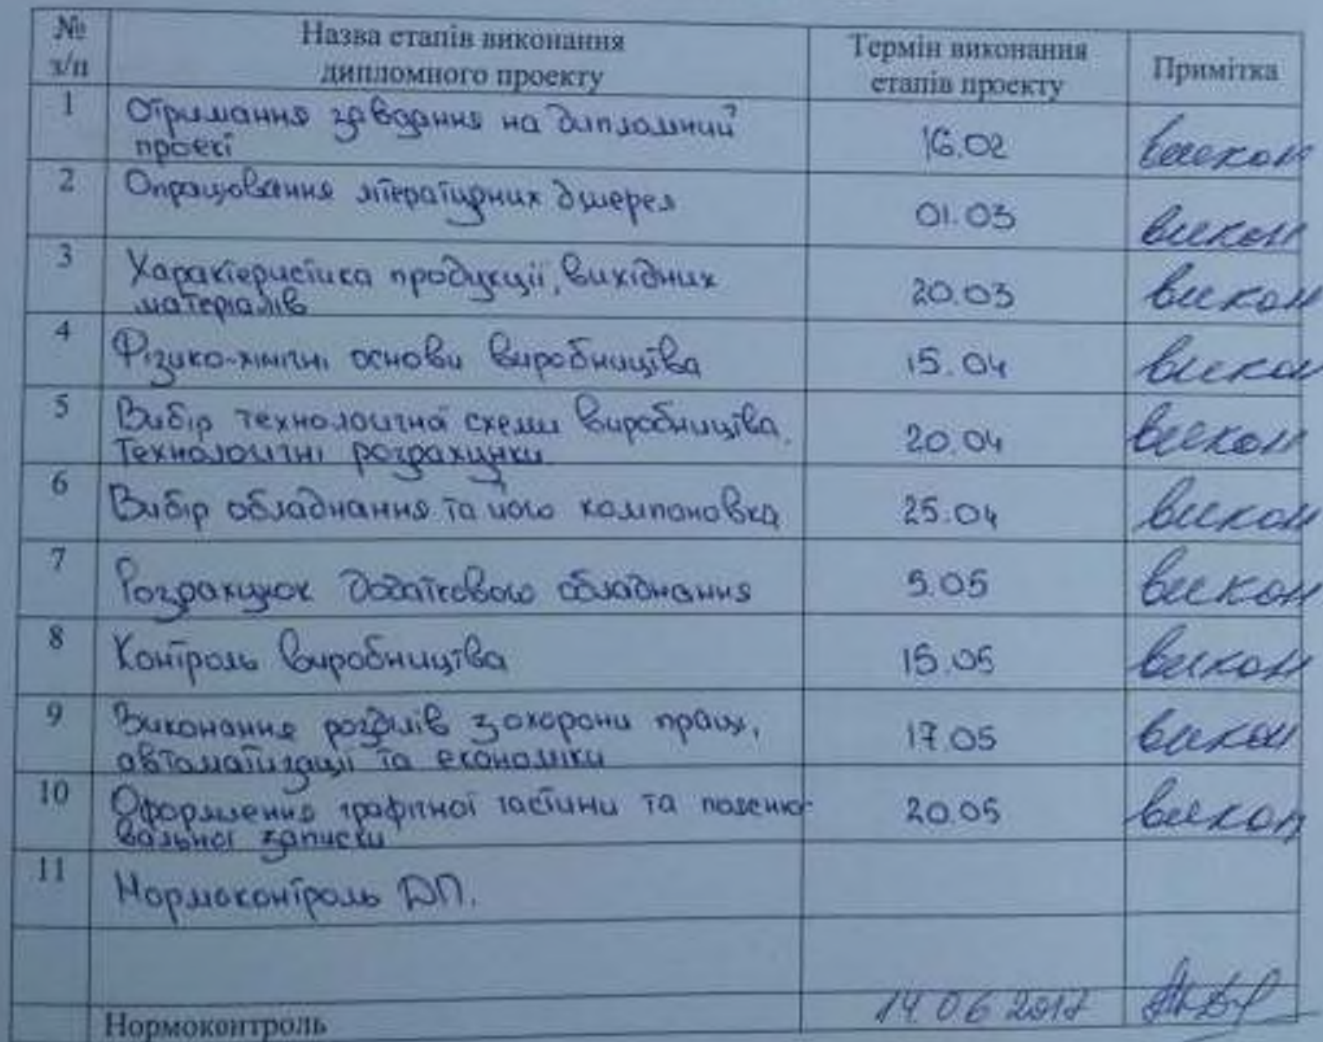 № з/п
Назва етапів виконання
дипломного проекту
Термін виконання
етапів проекту
Примітка
1
Отримання завдання на дипломний
проект
16.02
викон
2
Опрацювання літературних джерел
01.03
викон
3
Характеристика продукції, вихідних
матеріалів
20.03
викон
4
Фізико-хімічні основи виробництва
15.04
викон
5
Вибір технологічної схеми виробництва.
Технологічні розрахунки
20.04
викон
6
Вибір обладнання та його компоновка
25.04
викон
7
Розрахунок додаткового обладнання
5.05
викон
8
Контроль виробництва
15.05
викон
9
Виконання розділів з охорони праці,
автоматизації та економіки
17.05
викон
10
Оформлення графічної частини та поясню-
вальної записки
20.05
викон
11
Нормоконтроль ДП.
Нормоконтроль
14.06 2017